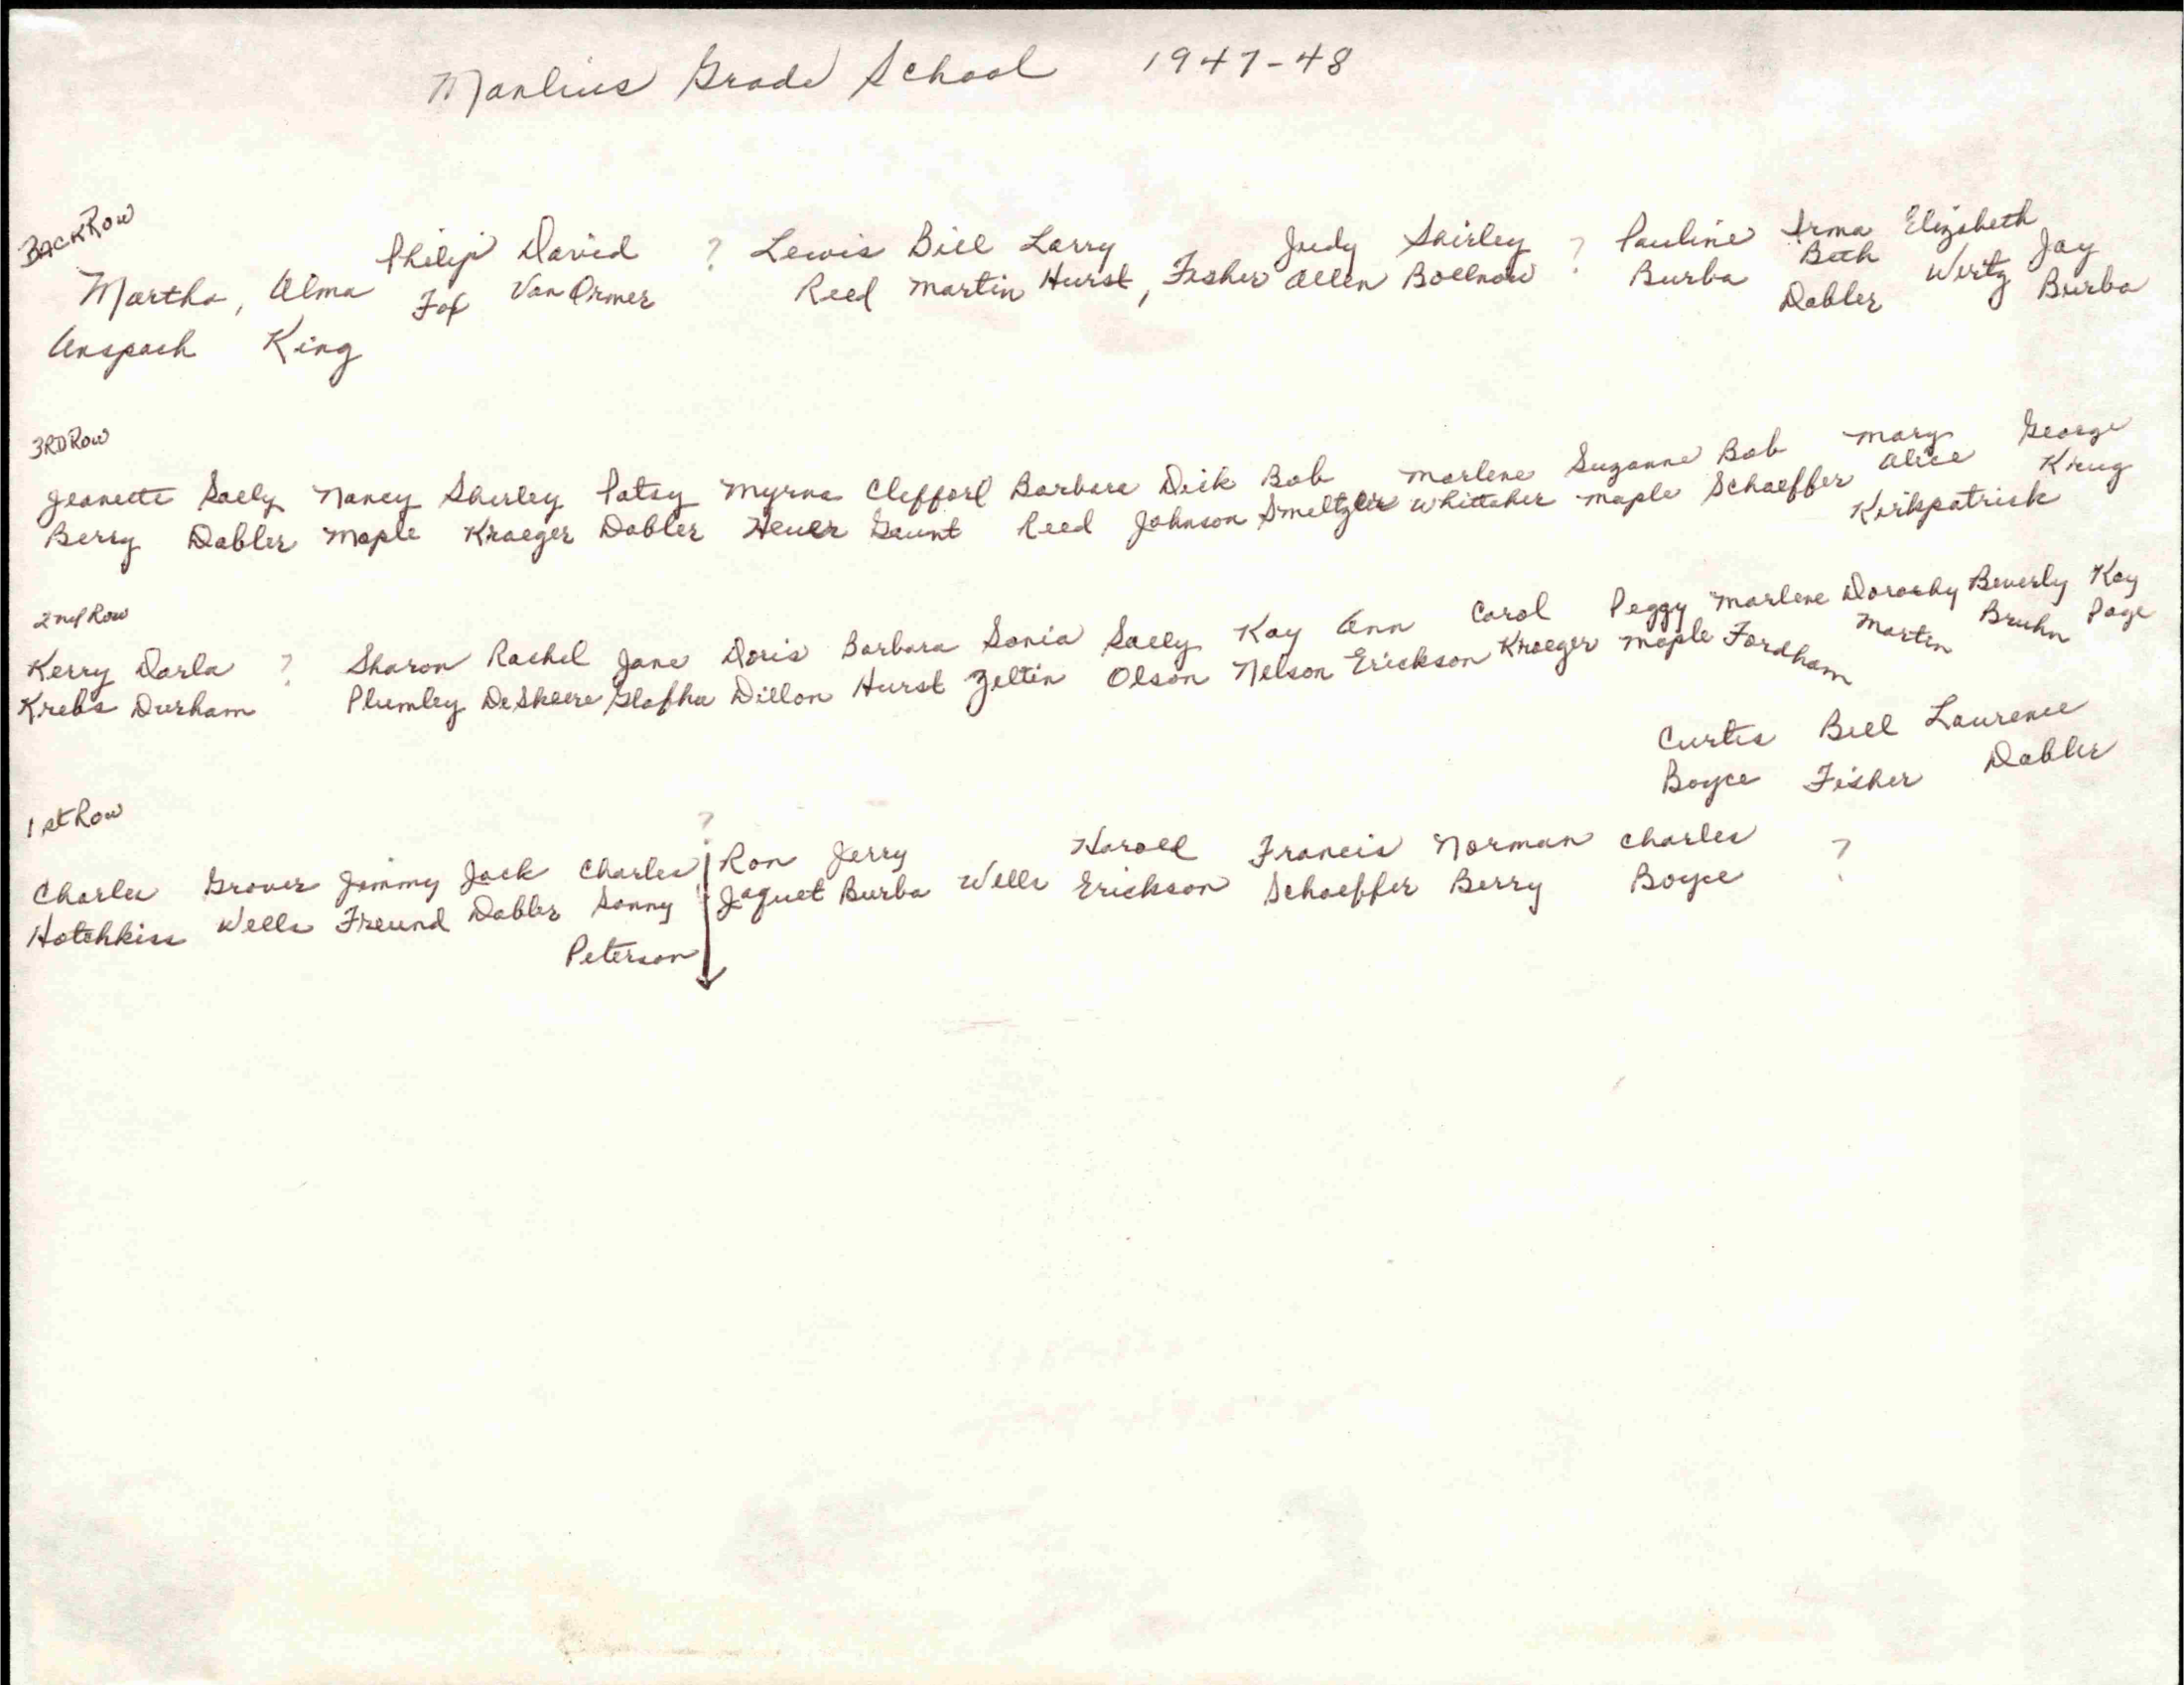 Manlius Grade School 1947-48
Back Row
Philip David ? Lewis Bill Larry Judy Shirley ? Pauline Irma Elizabeth
Martha, Alma Fox Van Ormer Reed Martin Hurst, Fisher Allen Bollnow Burba Beth Wertz Jay
Anspach King Dabler Burba
3RD Row
Jeanette Sally Nancy Shirley Patsy Myrna Clifford Barbara Dick Bob Marlene Suzanne Bob Mary George
Berry Dabler Maple Kraeger Dabler Heuer Gaunt Reed Johnson Smeltzer Whittaker Maple Schaeffer Alice Krug
Kirkpatrick
2nd Row
Kerry Darla ? Sharon Rachel Jane Doris Barbara Sonia Sally Kay Ann Carol Peggy Marlene Dorothy Beverly Kay
Krebs Durham Plumley DeSkeere Glafka Dillon Hurst Zeltin Olson Nelson Erickson Kraeger Maple Fordham Martin Bruhn Page
Curtis Bill Laurence
Boyce Fisher Dabler
1st Row
?
Charles Grover Jimmy Jack Charles Ron Jerry Harold Francis Norman Charles ?
Hotchkiss Wells Freund Dabler Sonny Jaquet Burba Wells Erickson Schaeffer Berry Boyce
Peterson